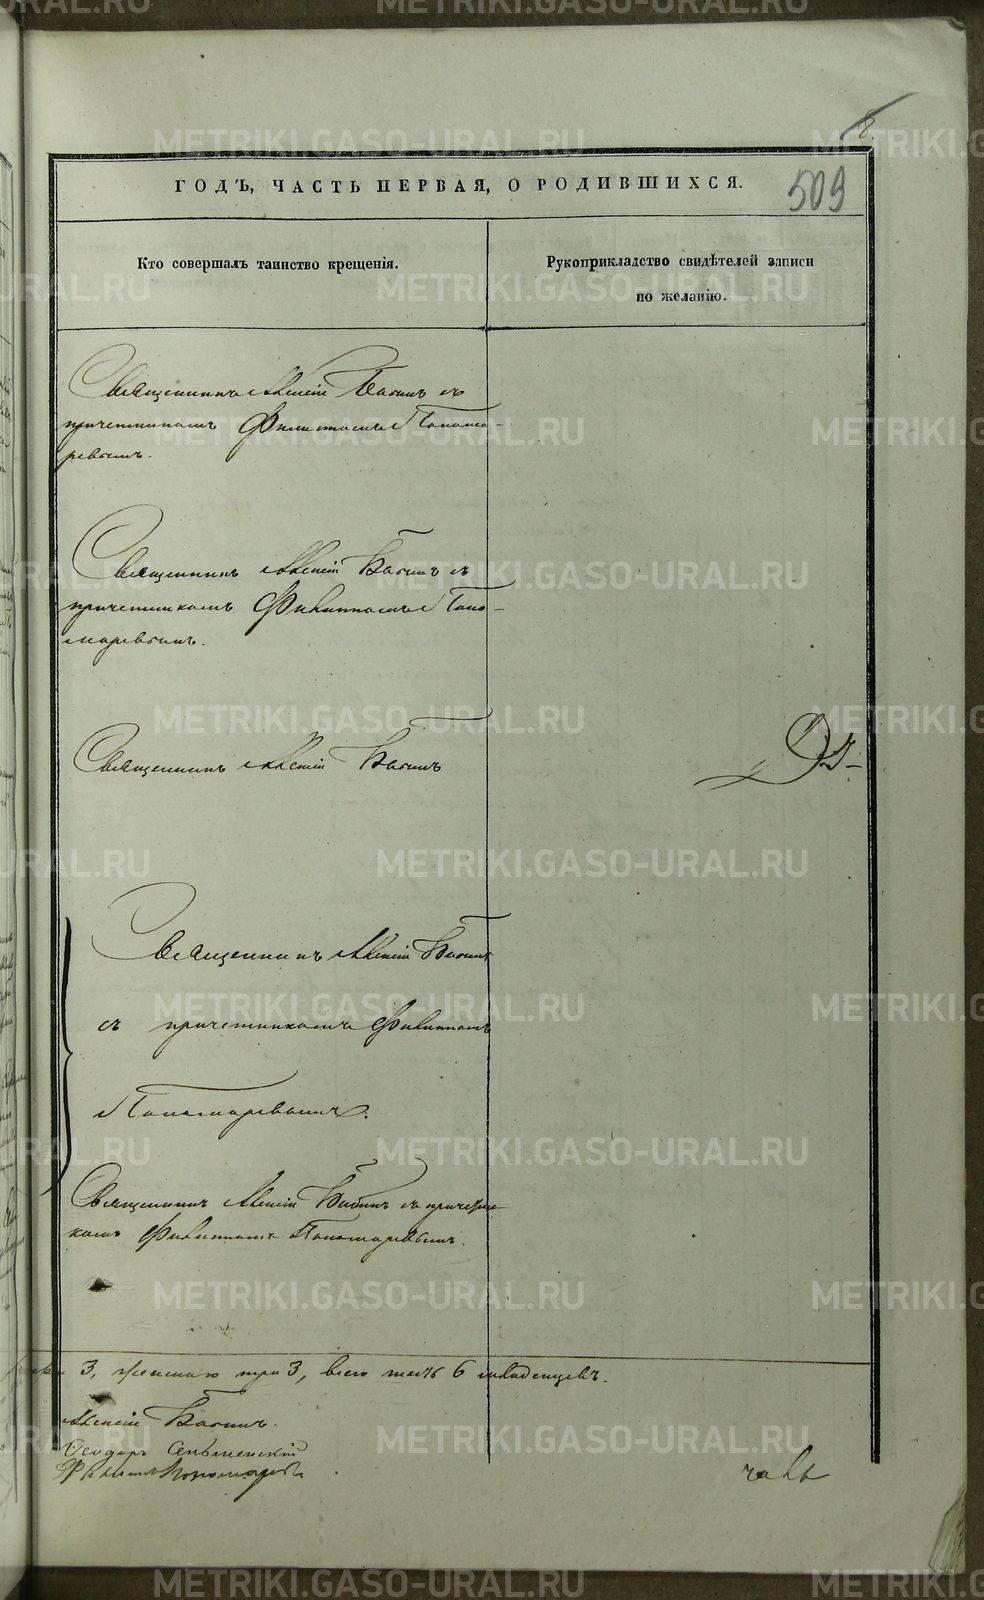 8
ГОДЪ, ЧАСТЬ ПЕРВАЯ, О РОДИВШИХСЯ.
509
Кто совершалъ таинство крещенія.
Рукоприкладство свидѣтелей записи
по желанію.
Священникъ Алексій Бабинъ съ
причетникомъ Филиппомъ Понома-
ревымъ.
Священникъ Алексій Бабинъ съ
причетникомъ Филиппомъ Поно-
маревымъ.
Священникъ Алексій Бабинъ
Священникъ Алексій Бабинъ
съ причетникомъ Филиппомъ
Пономаревымъ.
Священникъ Алексій Бабинъ съ причетни-
комъ Филиппомъ Пономаревымъ.
3, женска три 3, всего шесть 6 младенцевъ.
Алексій Бабинъ.
Ѳеодоръ
Филиппъ Пономаревъ
METRIKI.GASO-URAL.RU